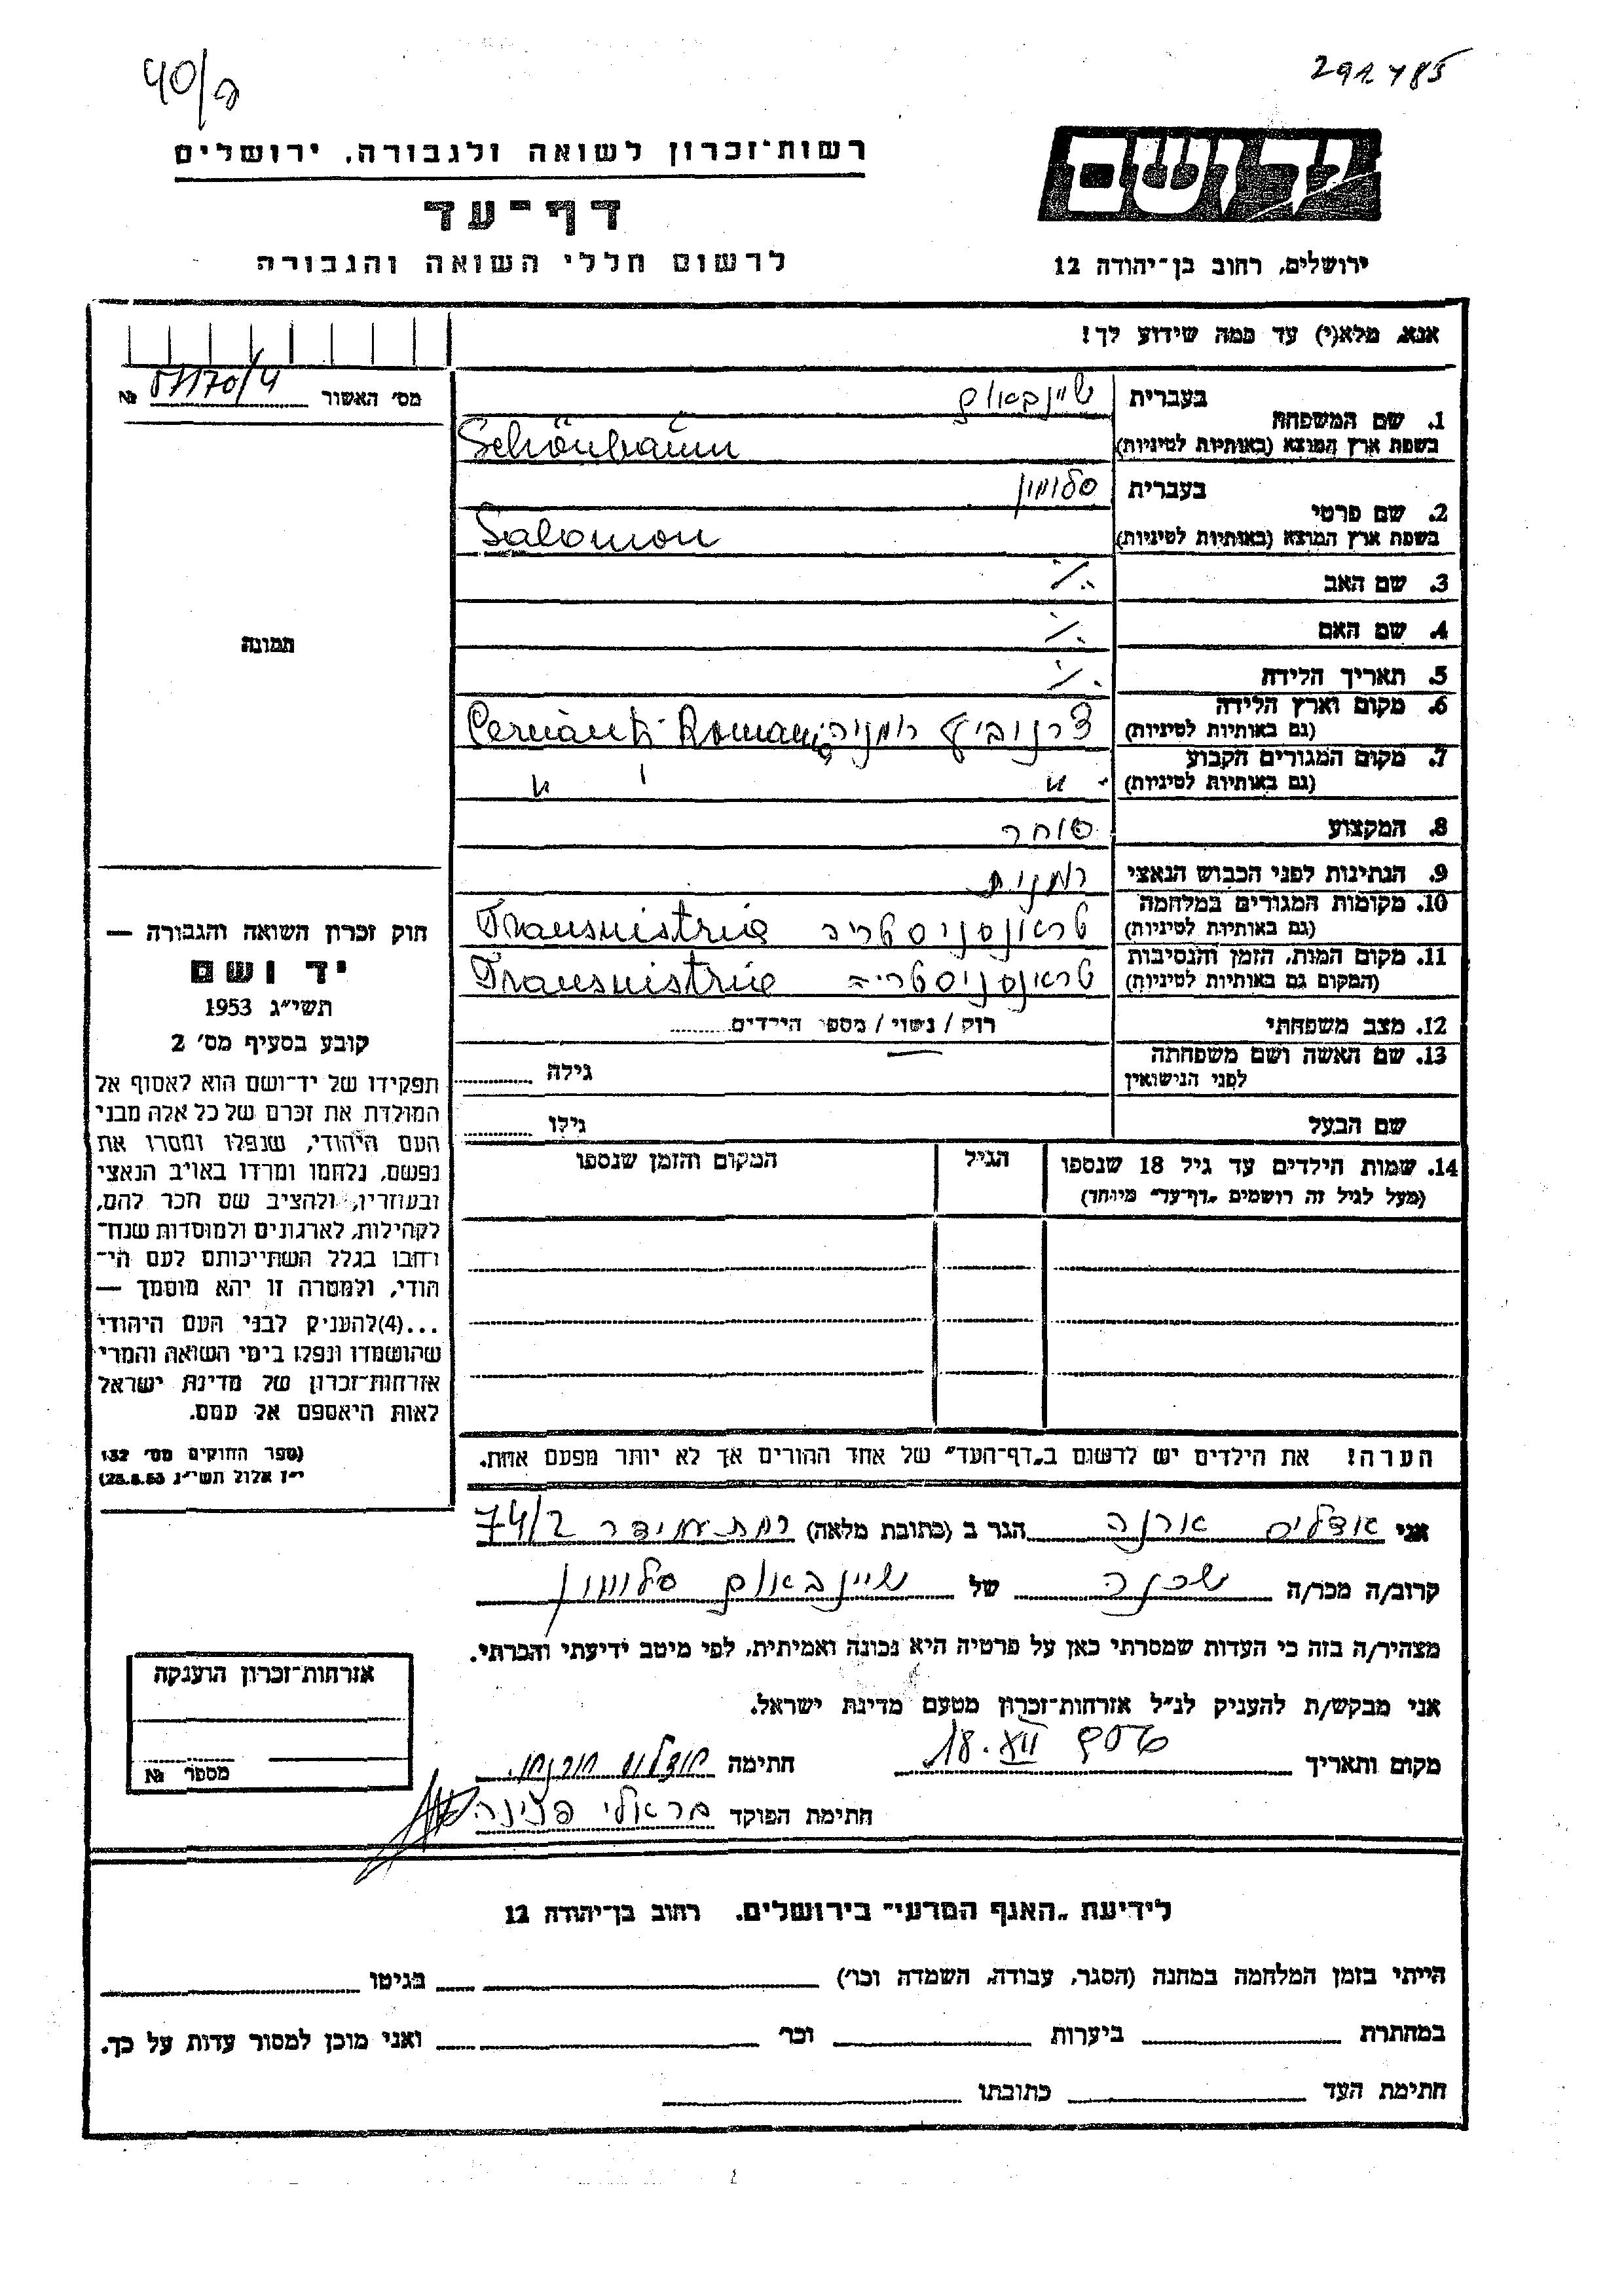 291485
40/ק
יד ושם
ירושלים, רחוב בן־יהודה 12
רשות־זכרון לשואה ולגבורה, ירושלים
דף־עד
לרשום חללי השואה והגבורה
אנא, מלא(י) עד כמה שידוע לך!
מס׳ האשור № 57170/4
תמונה
1. שם המשפחה
בעברית שיינבאום
בשפת ארץ המוצא (באותיות לטיניות) Schönbaum
2. שם פרטי
בעברית סלומון
בשפת ארץ המוצא (באותיות לטיניות) Salomon
3. שם האב ./.
4. שם האם ./.
5. תאריך הלידה ./.
6. מקום וארץ הלידה
(גם באותיות לטיניות) צרנוביץ רומניה Cernăuți - Romania
7. מקום המגורים הקבוע
(גם באותיות לטיניות) " "
8. המקצוע סוחר
9. הנתינות לפני הכבוש הנאצי רמנית
10. מקומות המגורים במלחמה
(גם באותיות לטיניות) טראנסניסטריה Transnistria
11. מקום המות, הזמן והנסיבות
(המקום גם באותיות לטיניות) טראנסניסטריה Transnistria
12. מצב משפחתי רוק / נשוי / מספר הירדים
13. שם האשה ושם משפחתה
לפני הנישואין גילה
שם הבעל גילו
14. שמות הילדים עד גיל 18 שנספו הגיל המקום והזמן שנספו
(מעל לגיל זה רושמים „דף־עד״ מיוחד)
הערה! את הילדים יש לרשום ב„דף־העד״ של אחד ההורים אך לא יותר מפעם אחת.
חוק זכרון השואה והגבורה —
יד ושם
תשי״ג 1953
קובע בסעיף מס׳ 2
תפקידו של יד־ושם הוא לאסוף אל
המולדת את זכרם של כל אלה מבני
העם היהודי, שנפלו ומסרו את
נפשם, נלחמו ומרדו באויב הנאצי
ובעוזריו, ולהציב שם וזכר להם,
לקהילות, לארגונים ולמוסדות שנח־
רבו בגלל השתייכותם לעם הי־
הודי, ולמטרה זו יהא מוסמך —
...(4)להעניק לבני העם היהודי
שהושמדו ונפלו בימי השואה והמרי
אזרחות־זכרון של מדינת ישראל
לאות היאספם אל עמם.
(ספר החוקים מס׳ 132
י״ז אלול תשי״ג 28.8.53)
אני אודליס ארנה הגר ב (כתובת מלאה) רמת עמידר 74/2
קרוב/ה מכר/ה שכנה של שיינבאום סלומון
מצהיר/ה בזה כי העדות שמסרתי כאן על פרטיה היא נכונה ואמיתית, לפי מיטב ידיעתי והכרתי.
אני מבקש/ת להעניק לנ״ל אזרחות־זכרון מטעם מדינת ישראל.
מקום ותאריך 18.XII חתימה
חתימת הפוקד בראלי פנינה
אזרחות־זכרון הוענקה
מספר №
לידיעת „האגף המדעי״ בירושלים, רחוב בן־יהודה 12
הייתי בזמן המלחמה במחנה (הסגר, עבודה, השמדה וכו׳) בגיטו
במחתרת ביערות וכו׳ ואני מוכן למסור עדות על כך.
חתימת העד כתובתו